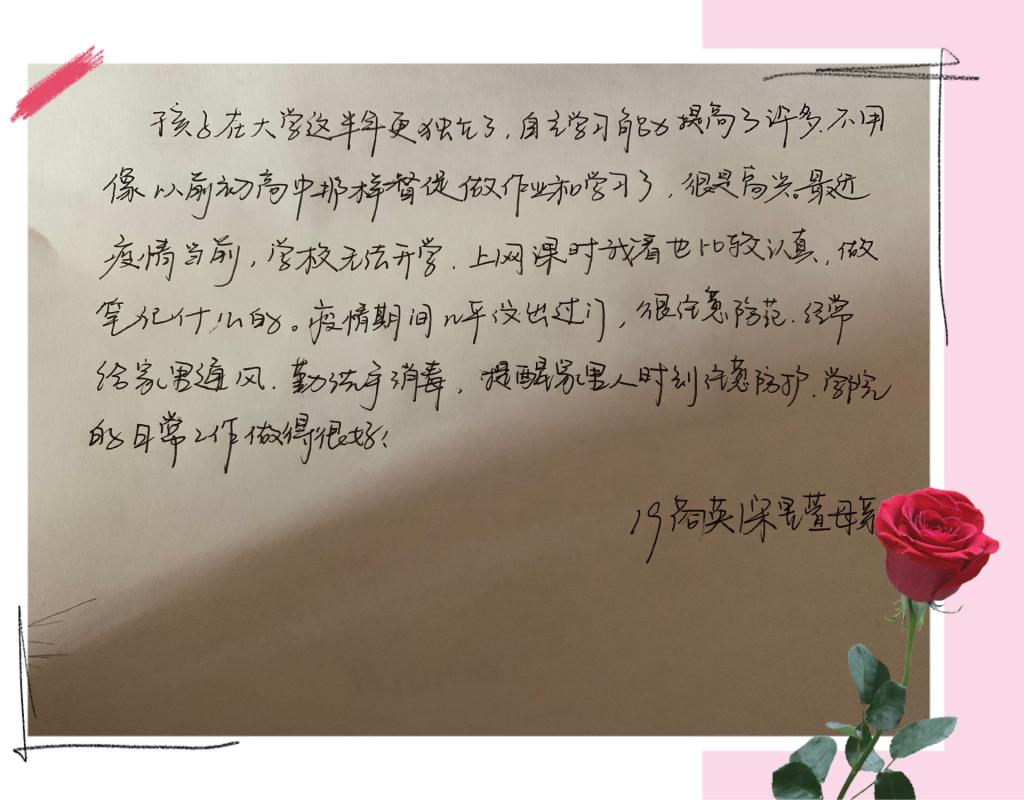 孩子在大学这半年更独立了，自主学习能力提高了许多.不用
像以前初高中那样督促做作业和学习了，很是高兴。最近
疫情当前，学校无法开学.上网课时我看也比较认真，做
笔记什么的。疫情期间几乎没出过门，很注意防范.经常
给家里通风.勤洗手消毒，提醒家里人时刻注意防护.学院
的日常工作做得很好！
19商英 梁 萱母亲